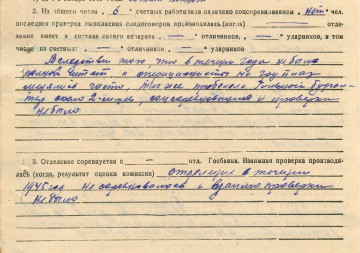 2. Из общего числа „ 6 " счетных работников охвачено соцсоревнованием „ нет " чел.
последняя проверка выполнения соцдоговоров производилась (когда) отде-
ление имеет в составе своего аппарата „ — " отличников, „ — " ударников, в том
числе из счетных: „ — " отличников, „ — " ударников
Вследствии того, что в течении года не было
полной штат и
часто, также
около 2-х мес, соцсоревнования и проверки
не было
3. Отделение соревнуется с — отд. Госбанка. Взаимная проверка производи-
лась (когда, результат оценка комиссии) отделение в течении
1945 года не соревновалось и взаимо проверки
не было